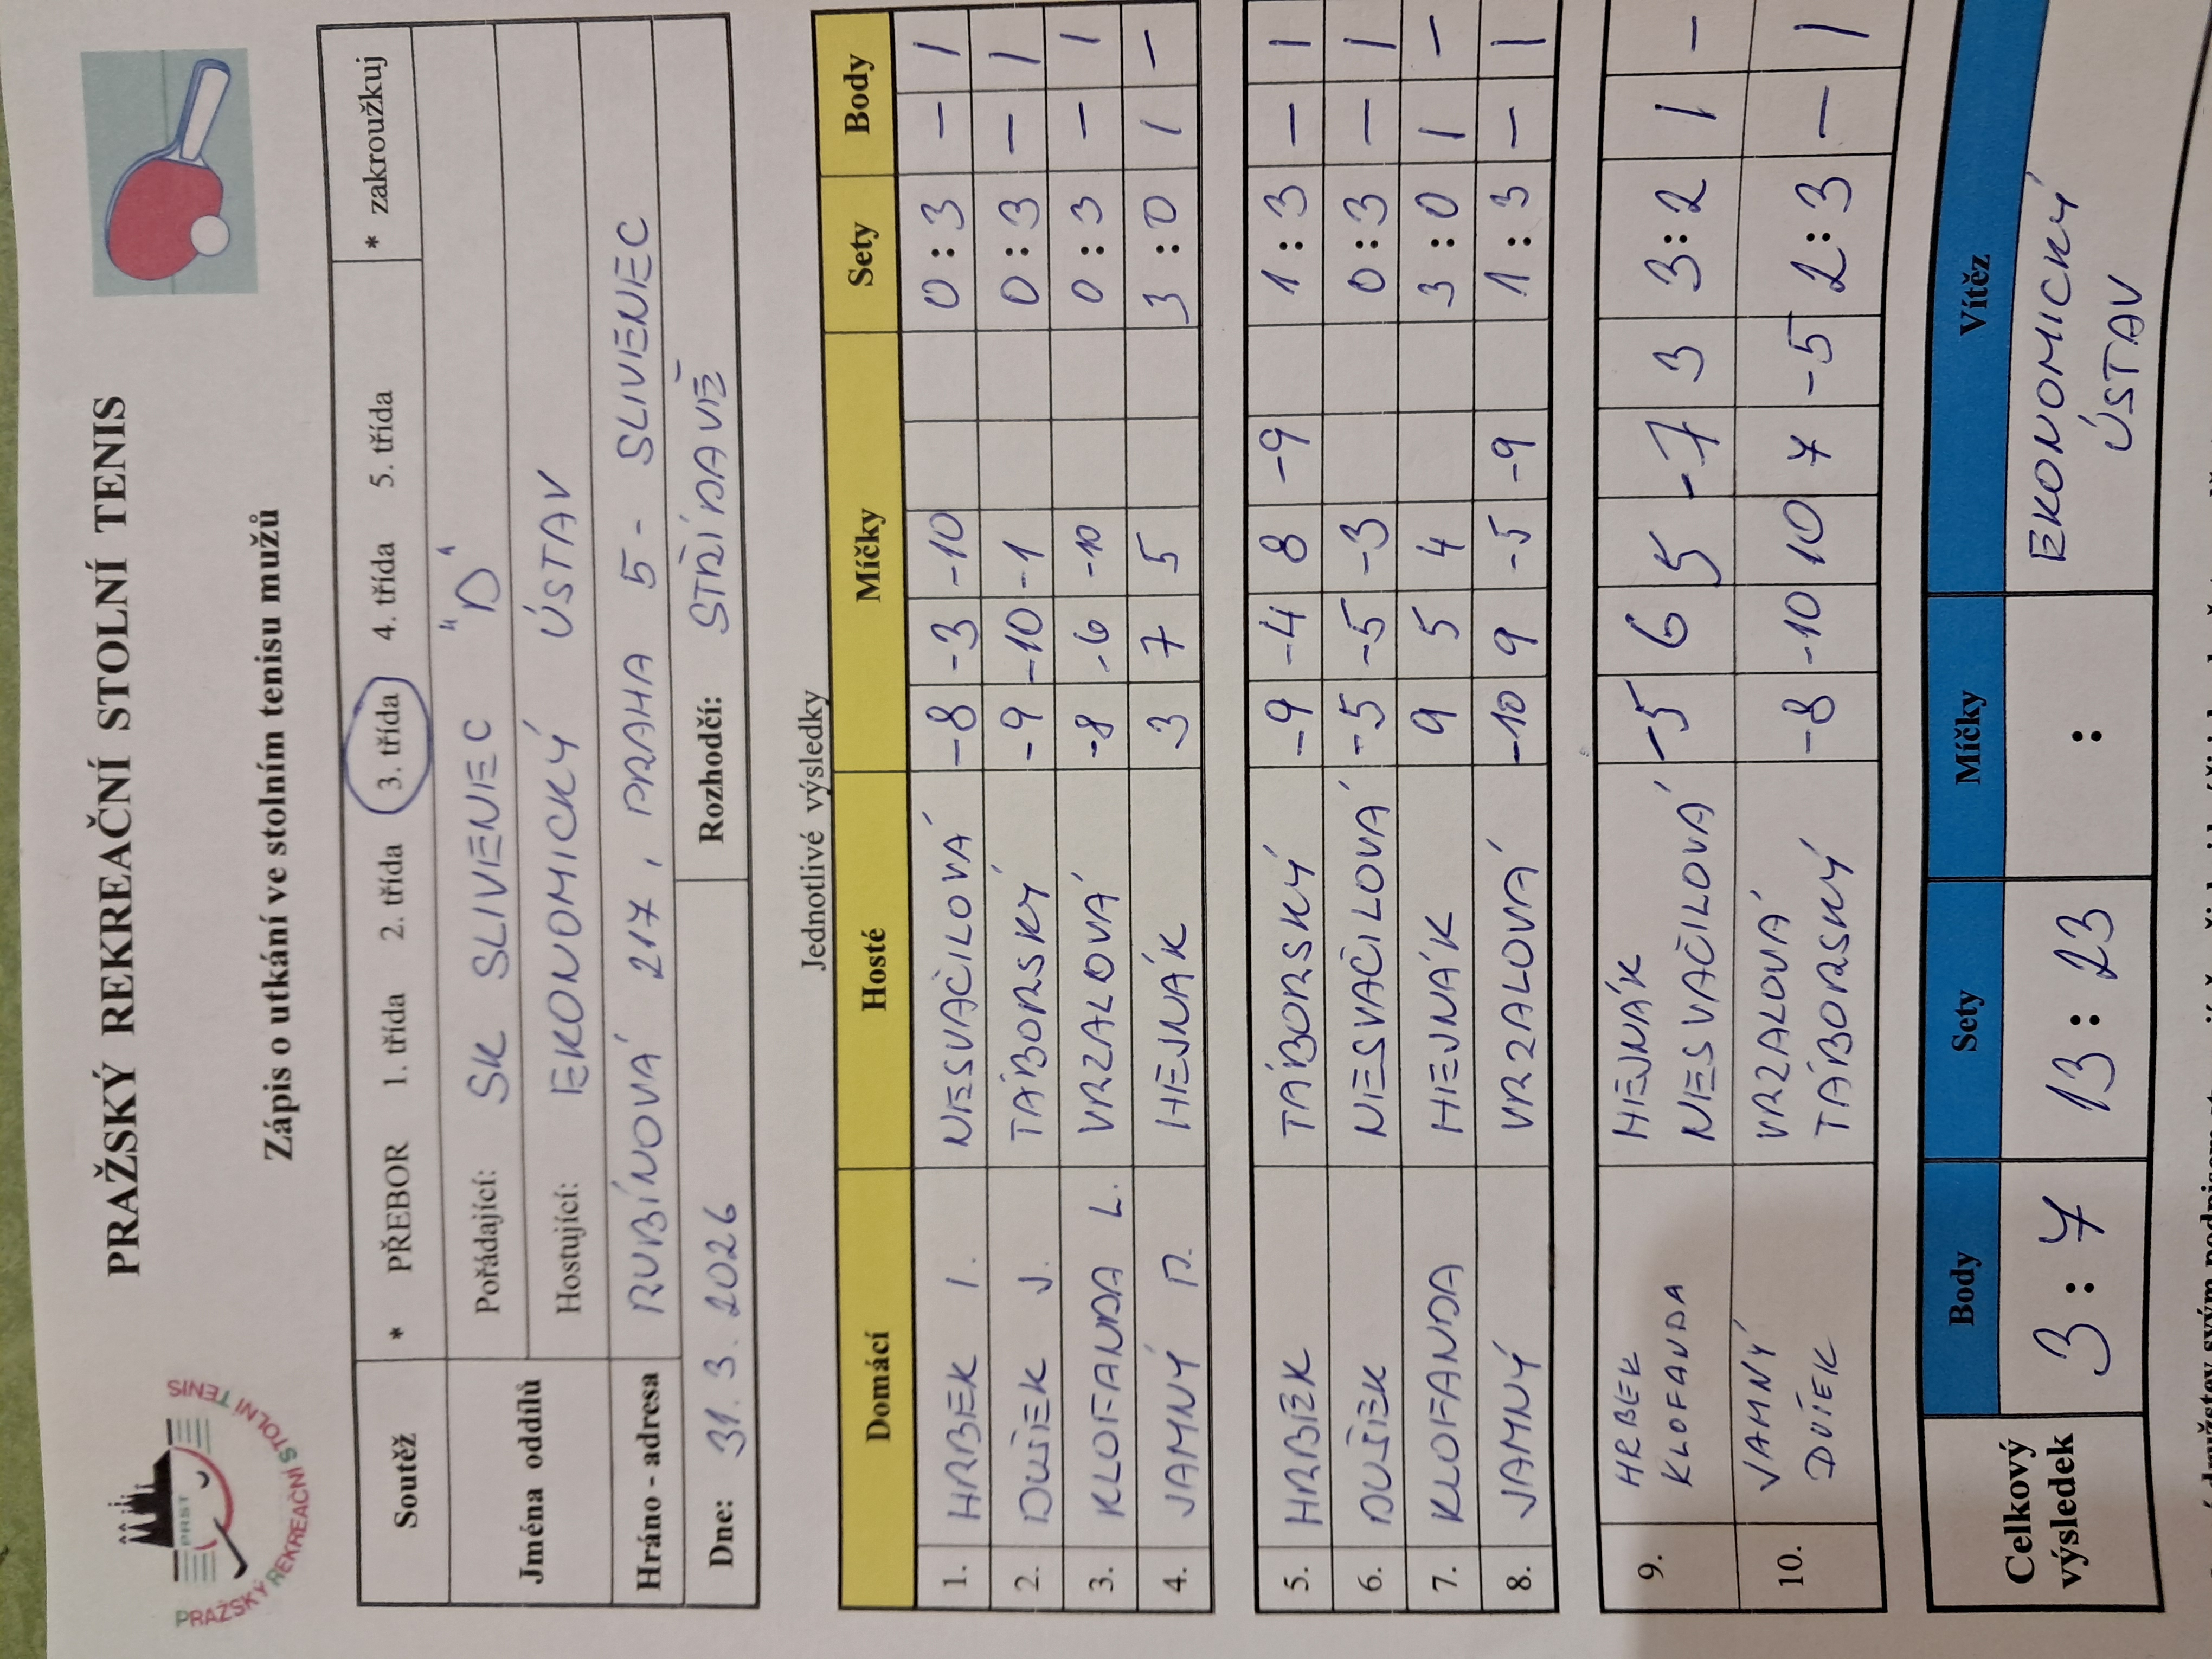 PRAŽSKÝ REKREAČNÍ STOLNÍ TENIS
PRAŽSKÝ REKREAČNÍ STOLNÍ TENIS
PRST
Zápis o utkání ve stolním tenisu mužů
Soutěž * PŘEBOR 1. třída 2. třída 3. třída 4. třída 5. třída * zakroužkuj
Jména oddílů
Pořádající: SK SLIVENEC "D"
Hostující: EKONOMICKÝ ÚSTAV
Hráno - adresa RUBÍNOVÁ 217, PRAHA 5 - SLIVENEC
Dne: 31. 3. 2026 Rozhodčí: STŘÍDAVĚ
Jednotlivé výsledky
Domácí Hosté Míčky Sety Body
1. HRBEK I. NESVAČILOVÁ -8 -3 -10 0 : 3 – 1
2. DUŠEK J. TÁBORSKÝ -9 -10 -1 0 : 3 – 1
3. KLOFANDA L. VRZALOVÁ -8 -6 -10 0 : 3 – 1
4. JAMNÝ P. HEJNÁK 3 7 5 3 : 0 1 –
5. HRBEK TÁBORSKÝ -9 -4 8 -9 1 : 3 – 1
6. DUŠEK NESVAČILOVÁ -5 -5 -3 0 : 3 – 1
7. KLOFANDA HEJNÁK 9 5 4 3 : 0 1 –
8. JAMNÝ VRZALOVÁ -10 9 -5 -9 1 : 3 – 1
9. HRBEK KLOFANDA HEJNÁK NESVAČILOVÁ -5 6 5 -7 3 3 : 2 1 –
10. JAMNÝ DUŠEK VRZALOVÁ TÁBORSKÝ -8 -10 10 7 -5 2 : 3 – 1
Celkový výsledek
Body Sety Míčky Vítěz
3 : 7 13 : 23 : EKONOMICKÝ ÚSTAV